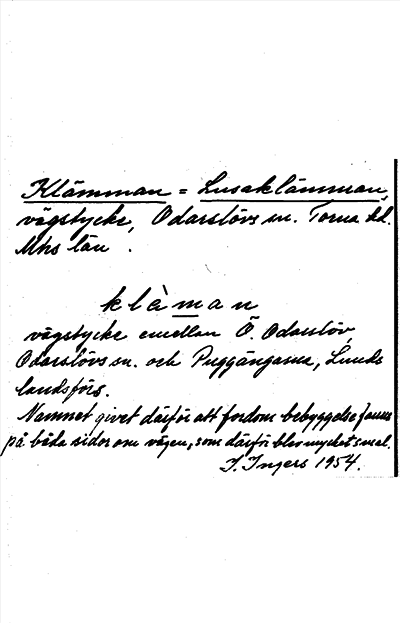 Klämman = Lusaklämman,
vägstycke, Odarslövs sn. Torna hd.
Mhs län.
klàman
vägstycke emellan Ö. Odarslöv,
Odarslövs sn. och Puggängarna, Lunds
landsförs.
Namnet givet därför att fordom bebyggelse fanns
på båda sidor om vägen, som därför blev mycket smal.
I. Ingers 1954.